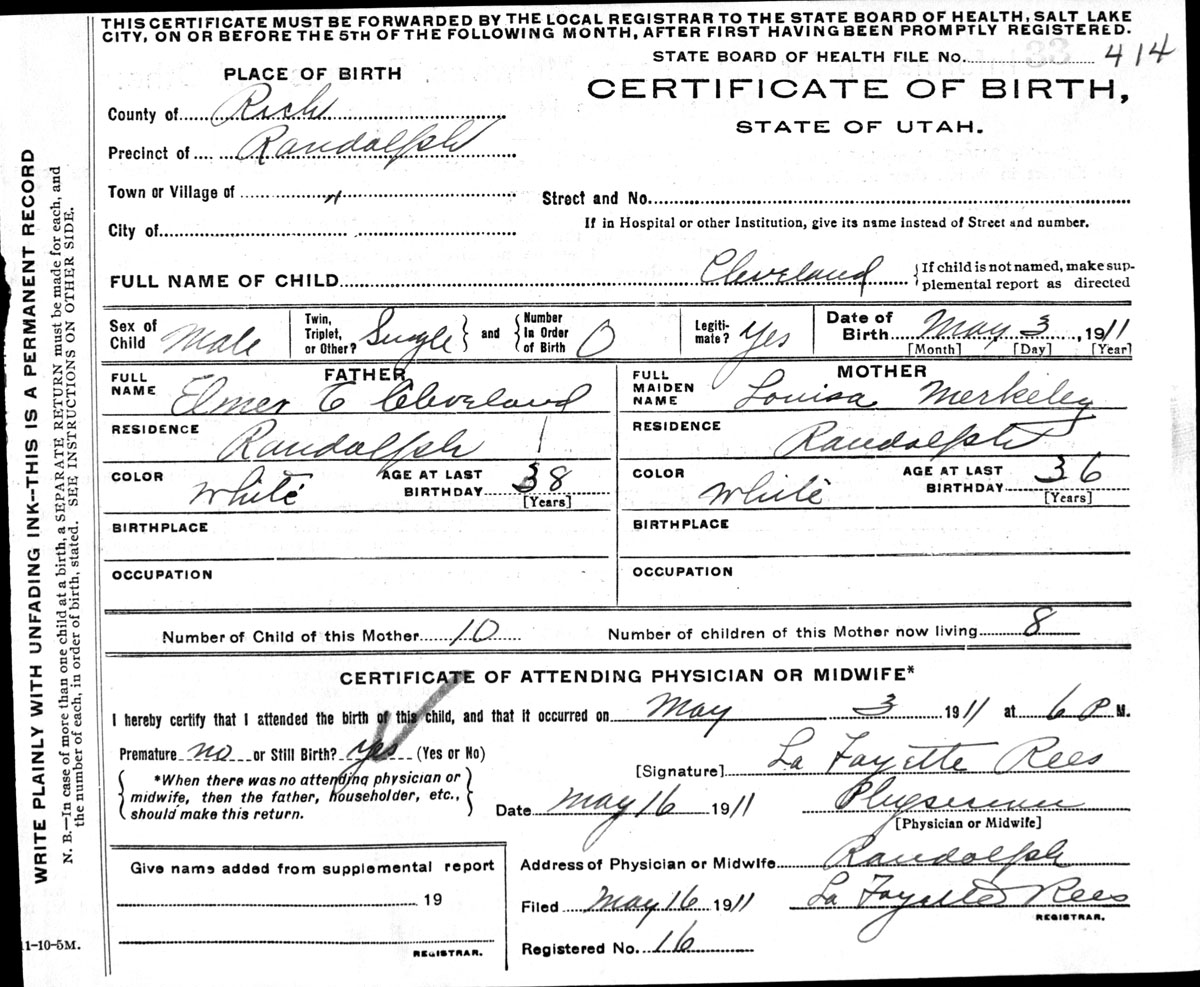 THIS CERTIFICATE MUST BE FORWARDED BY THE LOCAL REGISTRAR TO THE STATE BOARD OF HEALTH, SALT LAKE
CITY, ON OR BEFORE THE 5TH OF THE FOLLOWING MONTH, AFTER FIRST HAVING BEEN PROMPTLY REGISTERED.
STATE BOARD OF HEALTH FILE No. 33 414
PLACE OF BIRTH
CERTIFICATE OF BIRTH,
STATE OF UTAH.
County of Rich
Precinct of Randolph
Town or Village of "
Street and No.
City of
If in Hospital or other Institution, give its name instead of Street and number.
FULL NAME OF CHILD Cleveland {If child is not named, make sup-
plemental report as directed
Sex of Child Male
Twin, Triplet, or Other? Single } and { Number In Order of Birth 0
Legiti-mate? Yes
Date of Birth May 3, 1911
[Month] [Day] [Year]
FATHER
FULL NAME Elmer E Cleveland
RESIDENCE Randolph
COLOR White AGE AT LAST BIRTHDAY 38
[Years]
BIRTHPLACE
OCCUPATION
MOTHER
FULL MAIDEN NAME Louisa Merkeley
RESIDENCE Randolph
COLOR White AGE AT LAST BIRTHDAY 36
[Years]
BIRTHPLACE
OCCUPATION
Number of Child of this Mother 10 Number of children of this Mother now living 8
CERTIFICATE OF ATTENDING PHYSICIAN OR MIDWIFE*
I hereby certify that I attended the birth of this child, and that it occurred on May 3 1911 at 6 P M.
Premature no or Still Birth? yes (Yes or No)
[Signature] La Fayette Rees
{ *When there was no attending physician or
midwife, then the father, householder, etc.,
should make this return. }
Date May 16 1911 Physician
[Physician or Midwife]
Give name added from supplemental report
19
REGISTRAR.
Address of Physician or Midwife Randolph
Filed May 16 1911 La Fayette Rees
REGISTRAR.
Registered No. 16
WRITE PLAINLY WITH UNFADING INK--THIS IS A PERMANENT RECORD
N. B.—In case of more than one child at a birth, a SEPARATE RETURN must be made for each, and
the number of each, in order of birth, stated. SEE INSTRUCTIONS ON OTHER SIDE.
11-10-5M.